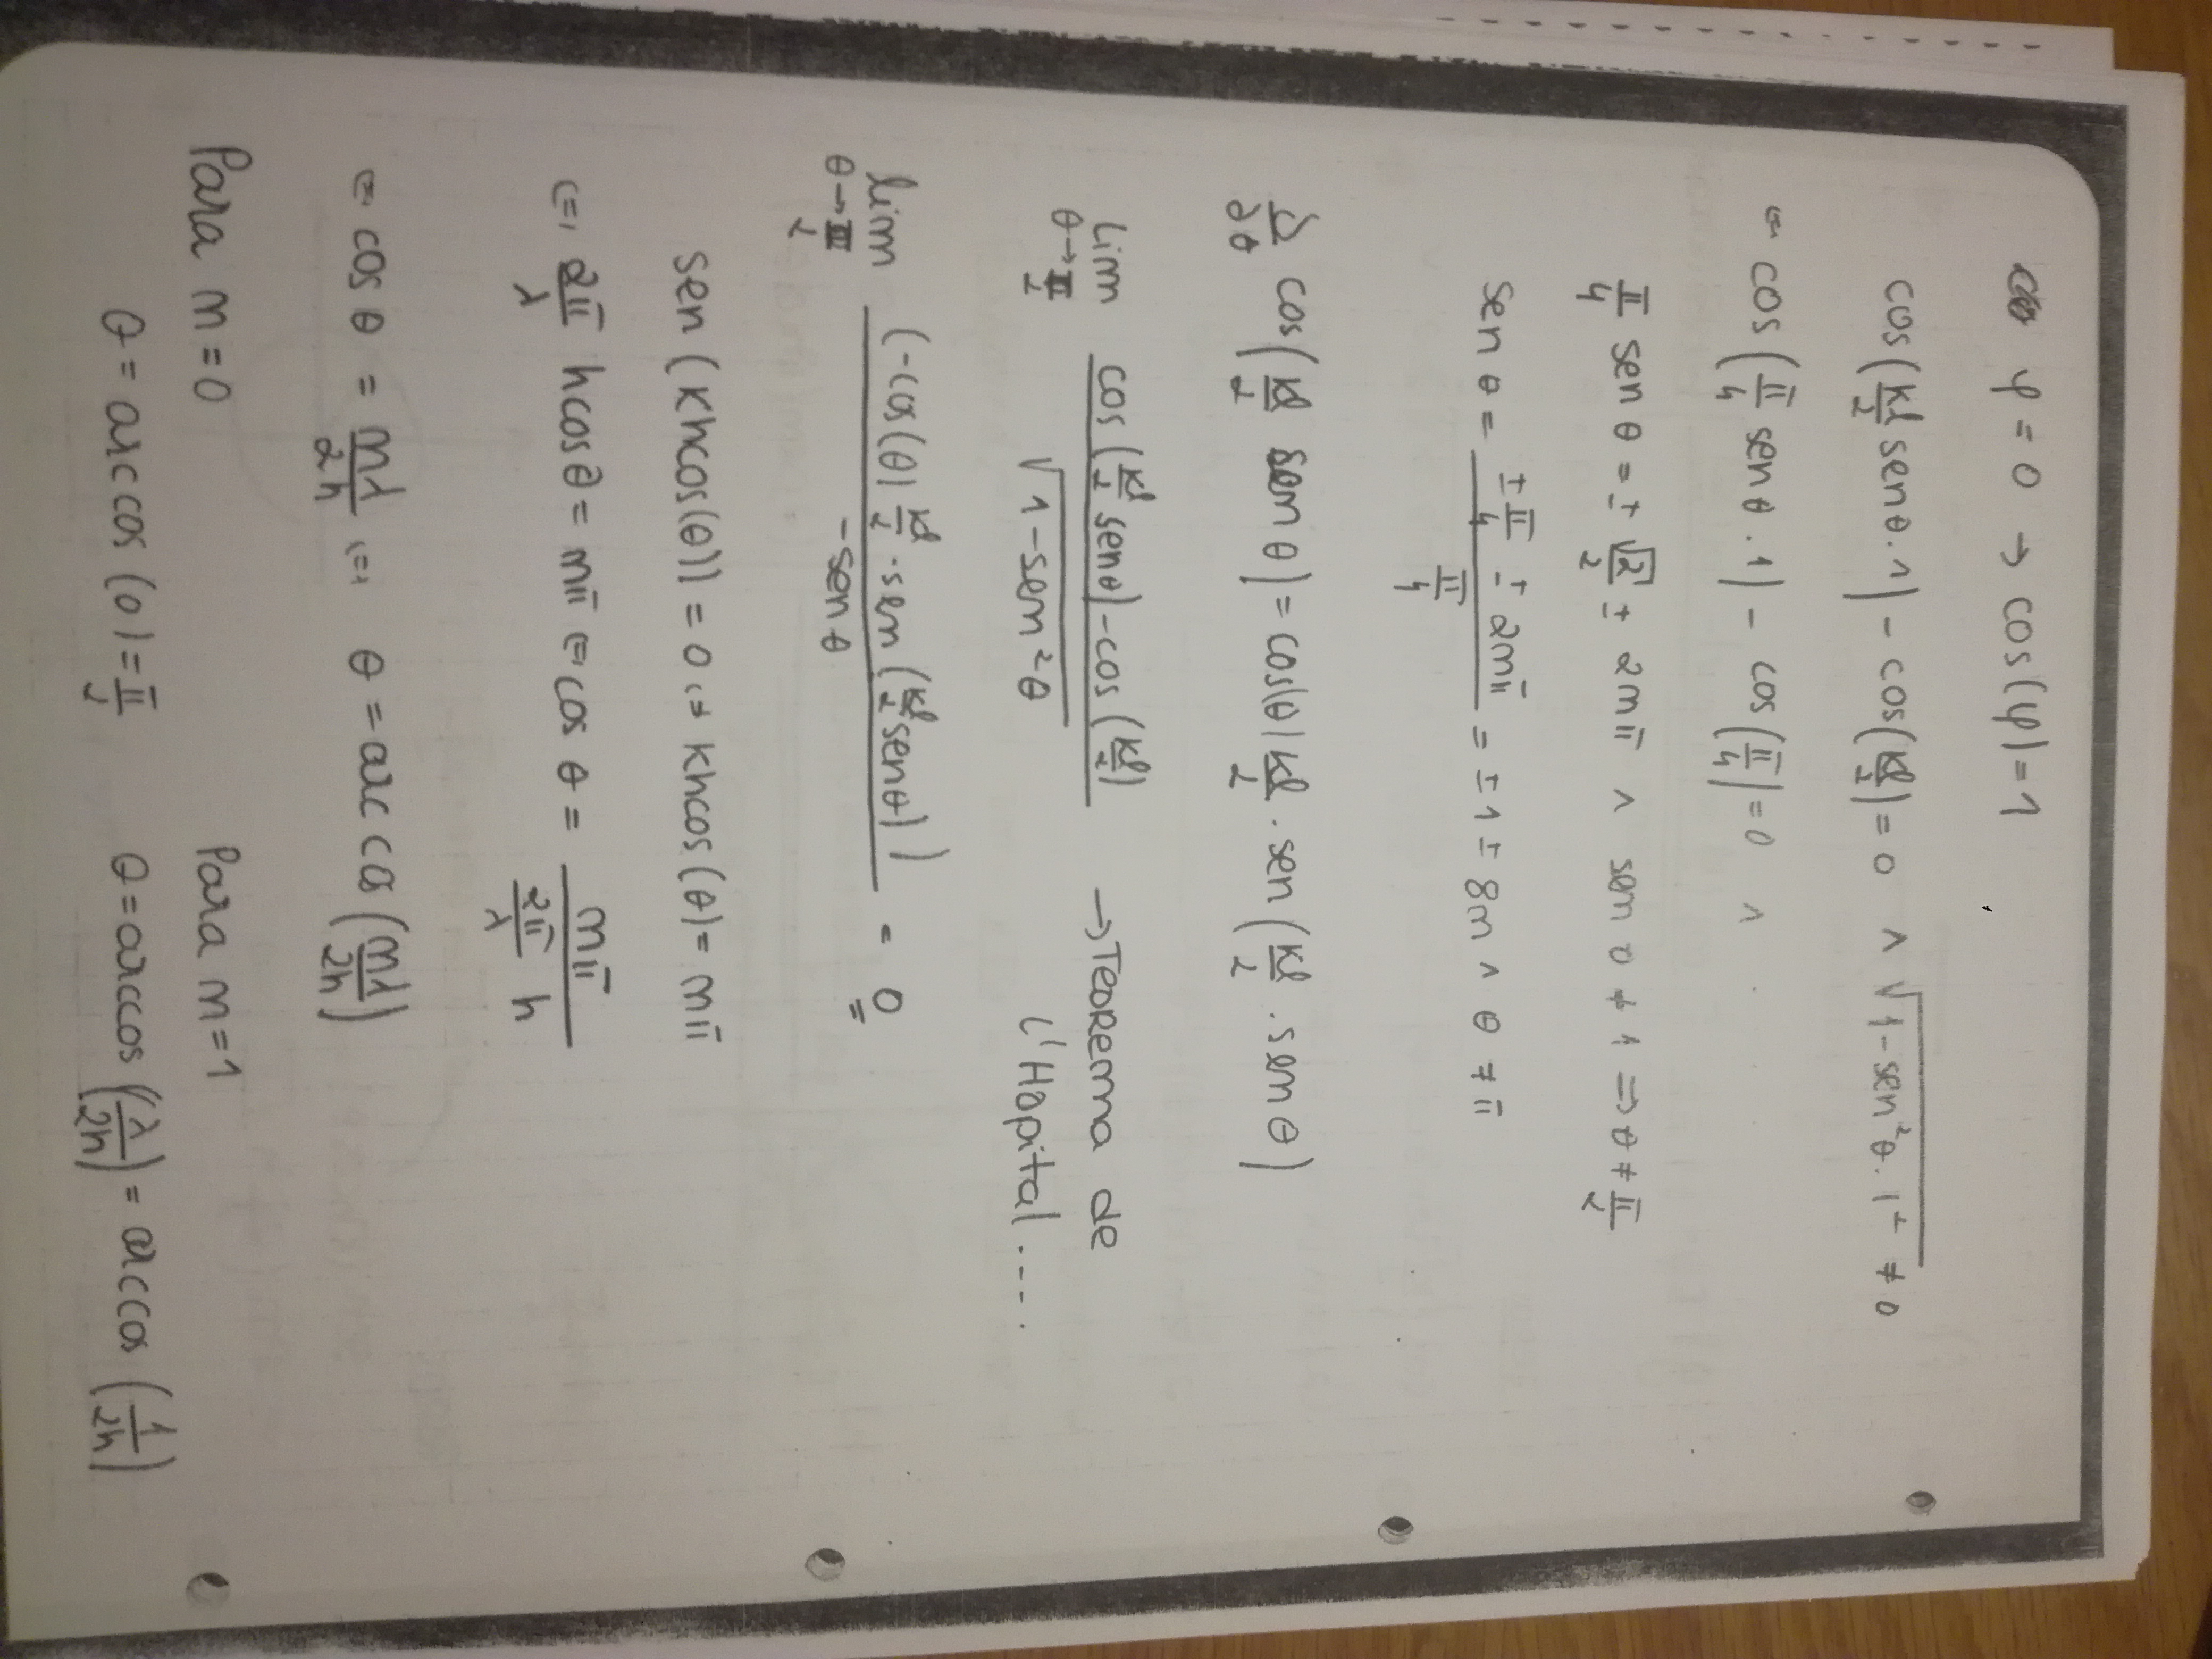 φ = 0 → cos(φ) = 1
cos(kl/2 senθ . 1) - cos(kl/2) = 0 ∧ √(1 - sen²θ . 1²) ≠ 0
⇔ cos(π/4 senθ . 1) - cos(π/4) = 0 ∧
π/4 sen θ = ± √2/2 ± 2nπ ∧ sen θ ≠ 1 ⇒ θ ≠ π/2
sen θ = (± π/4 ± 2nπ)/(π/4) = ± 1 ± 8n ∧ θ ≠ π
∂/∂θ cos(kl/2 sen θ) = cos(θ) kl/2 . sen(kl/2 . sen θ)
Lim θ→π/2 (cos(kl/2 senθ) - cos(kl/2))/√(1 - sen²θ) → Teorema de
L'Hopital ....
lim θ→π/2 (-cos(θ) kl/2 . sen(kl/2 senθ))/(-sen θ) = 0
sen (khcos(θ)) = 0 ⇔ khcos(θ) = nπ
⇔ 2π/λ hcosθ = nπ ⇔ cos θ = nπ/(2π/λ h)
⇔ cos θ = nλ/2h ⇔ θ = arc cos (nλ/2h)
Para n = 0 Para n = 1
θ = arc cos (0) = π/2 θ = arccos (λ/2h) = arc cos (1/2h)